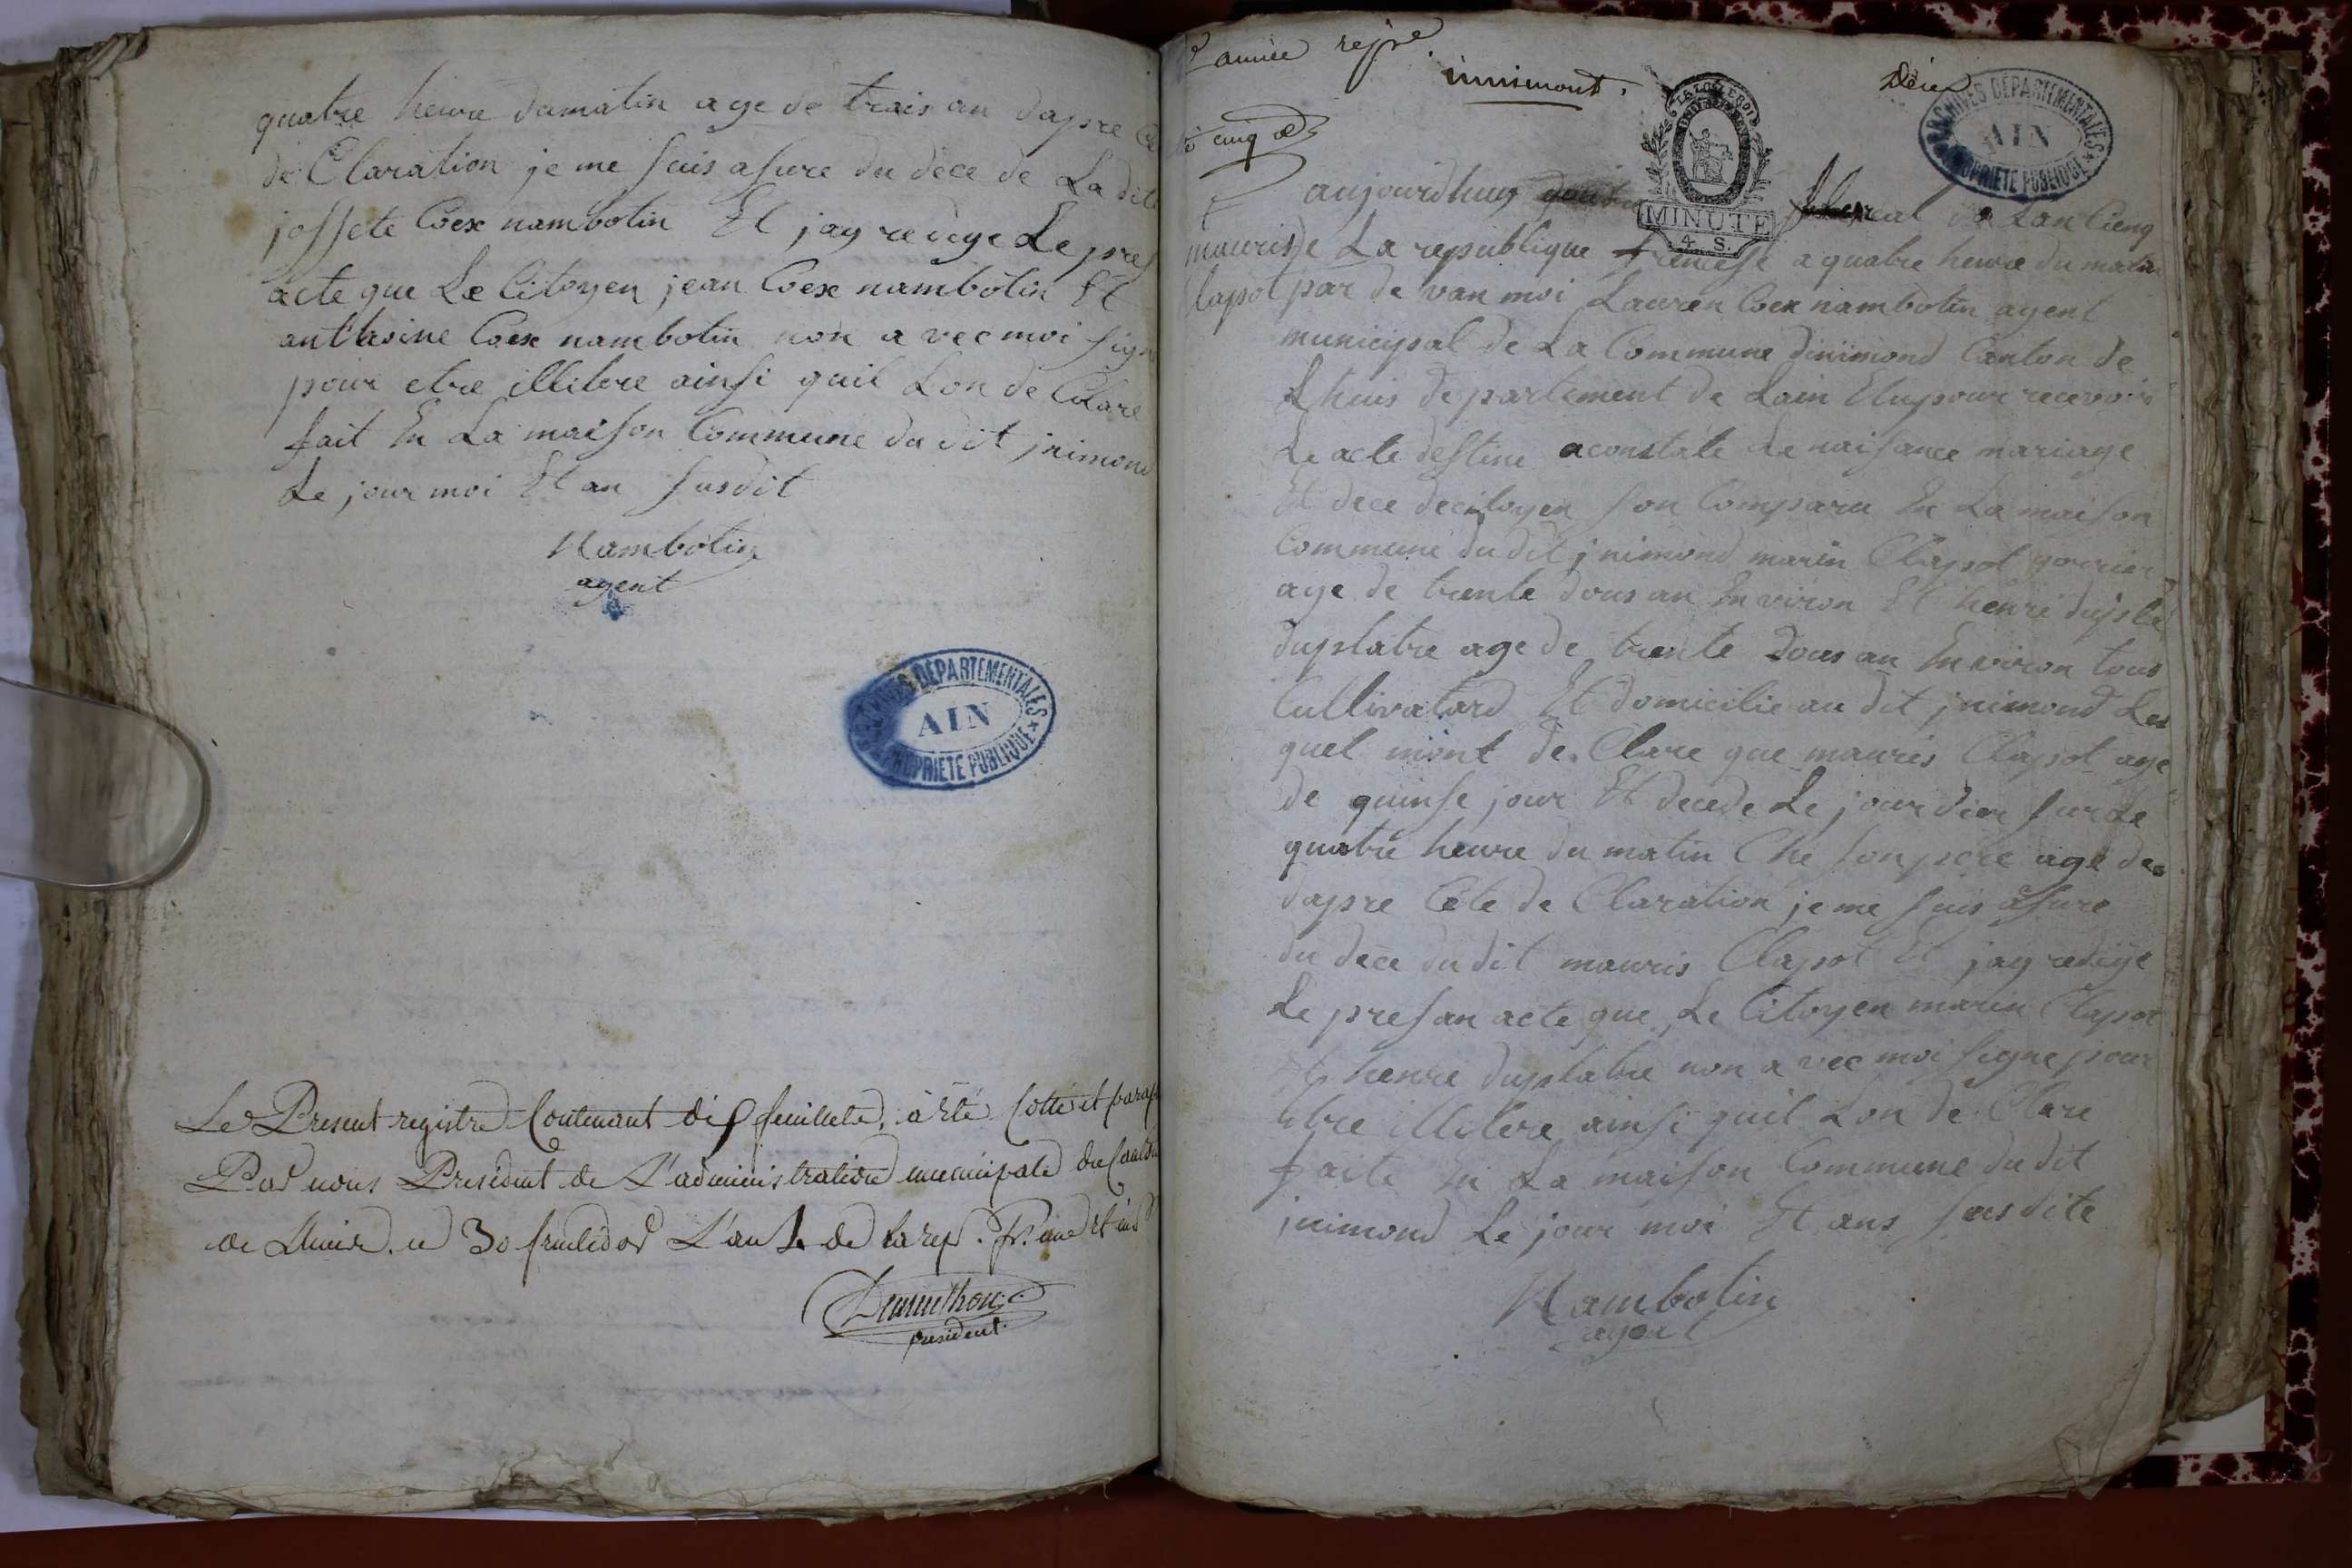 quatre heure dumatin age de trais an dapre Ce
de Claration je me suis asure du dece de La dite
jossete Coex nambotin Et jay redige Le pres
acte que Le Citoyen jean Coex nambotin Et
anthasine Coex nambotin non a vec moi signe
pour etre illitere ainsi quil Lon de Clare
fait En La maison Commune du dit jnimond
Le jour moi Et an susdit
Nambotin
agent
ARCHIVES DÉPARTEMENTALES
AIN
PROPRIÉTÉ PUBLIQUE
Le Present registre Contenant dix feuillets, à été Cotté et paraph
Par nous President de L'administration municipale du Canton
de Lhuis. ce 30 fructidor L'an 4 de la rep. fr. une et ind
president
année repre
innimont.
Déces
ARCHIVES DÉPARTEMENTALES
AIN
PROPRIÉTÉ PUBLIQUE
cinq
MINUTE
4. S.
aujourdhuy floreal de Lan Cienq
mauris de La republique francese a quatre heure du matin
Clapot par de van moi Lauren Coex nambotin agent
municipal de La Commune dinimond Canton de
Lhuis departement de Lain Elu pour recevoir
Le acte destine a constate Le naisance mariage
Et dece decitoyen son Comparu En La maison
Commune du dit jnimond marin Clapot
age de trente dous an En viron Et henri dupla
duplatre age de trente dous an En viron tous
Cultivatard Et domicilie au dit jnimond Les
quel mont de Clare que mauris Clapot age
de quinse jour Et decede Le jour dier sur Le
quatre heure du matin Che son pere age de
dapre Cete de Claration je me suis asure
du dece du dit mauris Clapot Et jay redige
Le presan acte que Le Citoyen marin Clapot
Et henri duplatre non a vec moi signe pour
etre illitere ainsi quil Lon de Clare
faite En La maison Commune du dit
jnimond Le jour moi Et ans susdite
Nambotin
agent